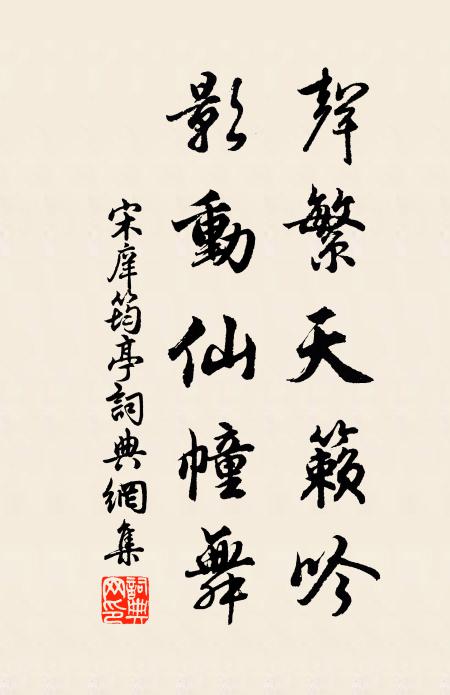 聲繁天籟吟
影動仙幢舞
宋庠筠亭詞典網集
詞典
网印